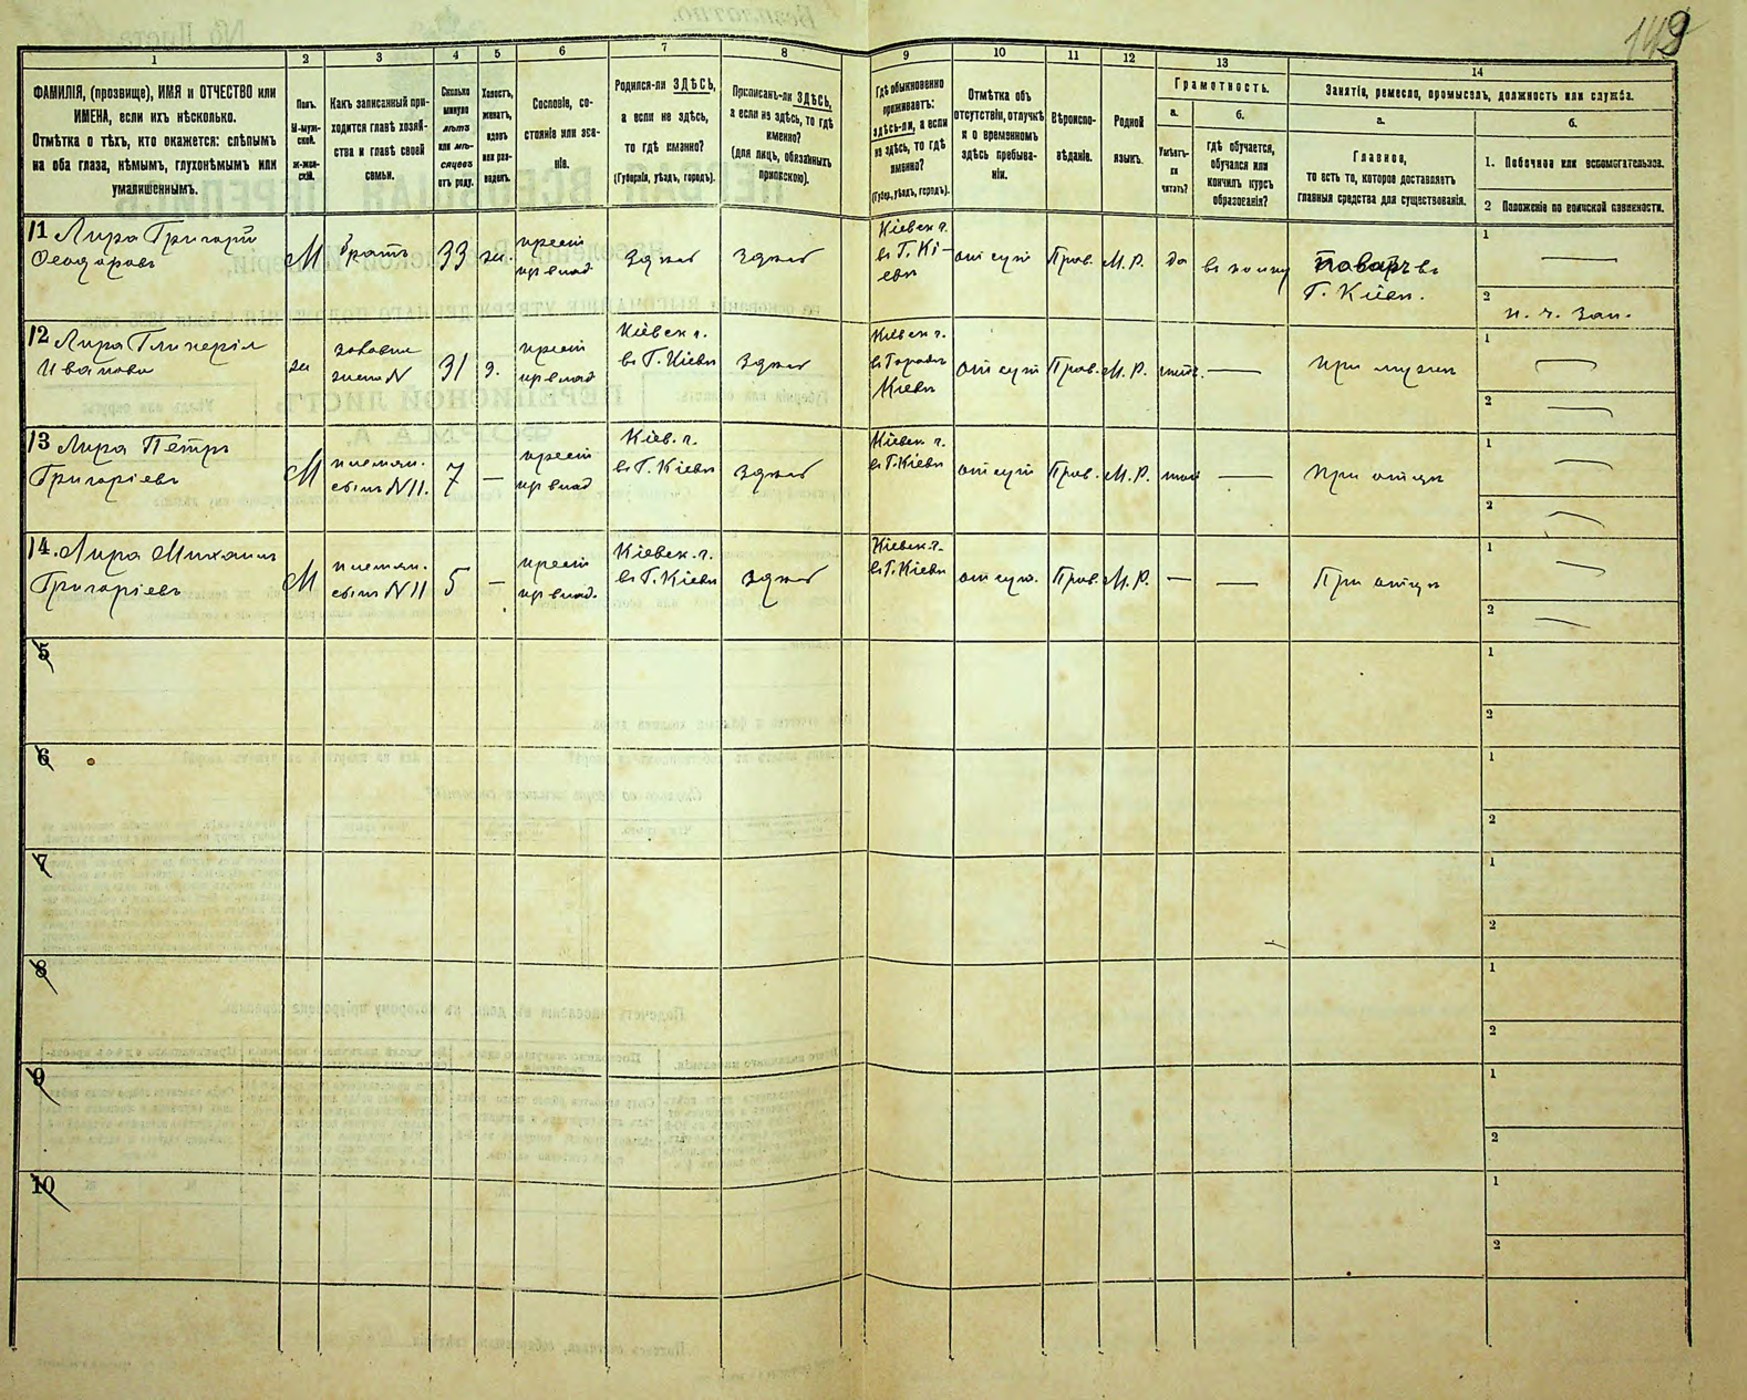 149
1
2
3
4
5
6
7
8
9
10
11
12
13
14
ФАМИЛІЯ, (прозвище), ИМЯ и ОТЧЕСТВО или
ИМЕНА, если ихъ нѣсколько.
Отмѣтка о тѣхъ, кто окажется: слѣпымъ
на оба глаза, нѣмымъ, глухонѣмымъ или
умалишеннымъ.
Полъ.
М-муж-
ской.
Ж-жен-
скій.
Какъ записанный при-
ходится главѣ хозяй-
ства и главѣ своей
семьи.
Сколько
минуло
лѣтъ
или мѣ-
сяцевъ
отъ роду.
Холостъ,
женатъ,
вдовъ
или раз-
веденъ.
Сословіе, со-
стояніе или зва-
ніе.
Родился-ли ЗДѢСЬ,
а если не здѣсь,
то гдѣ именно?
(Губернія, уѣздъ, городъ).
Приписанъ-ли ЗДѢСЬ,
а если не здѣсь, то гдѣ
именно?
(для лицъ, обязанныхъ
припискою).
Гдѣ обыкновенно
проживаетъ:
здѣсь-ли, а если
не здѣсь, то гдѣ
именно?
(Губер., уѣздъ, городъ).
Отмѣтка объ
отсутствіи, отлучкѣ
и о временномъ
здѣсь пребыва-
ніи.
Вѣроиспо-
вѣданіе.
Родной
языкъ.
Грамотность.
а.
Умѣетъ-
ли
читать?
б.
гдѣ обучается,
обучался или
кончилъ курсъ
образованія?
Занятіе, ремесло, промыселъ, должность или служба.
а.
Главное,
то есть то, которое доставляетъ
главныя средства для существованія.
б.
1. Побочное или вспомогательное.
2 Положеніе по воинской повинности.
11 Лира Григорій
Феодоровъ
М
братъ
33
же.
крест
изъ влад
Здѣсь
Здѣсь
Кіевск г.
въ Г. Кі-
евѣ
отсут
Прав.
М. Р.
да
Поваръ въ
Г. Кіевѣ.
1
2
н. ч. зап.
12 Лира Гликерія
Иванова
ж
жена N
31
з.
крест
изъ влад
Кіевск г.
въ Г. Кіевѣ
Здѣсь
Кіевск г.
въ Городѣ
Кіевѣ
отсут
Прав.
М. Р.
нѣтъ.
при мужѣ
1
2
13 Лира Петръ
Григоріевъ
М
племян.
сынъ N 11.
7
крест
изъ влад
Кіев. г.
въ Г. Кіевѣ
Здѣсь
Кіевск г.
въ Г. Кіевѣ
отсут
Прав.
М. Р.
нѣт
при отцѣ
1
2
14. Лира Михаилъ
Григоріевъ
М
племян.
сынъ N 11
5
крест
изъ влад.
Кіевск. г.
въ Г. Кіевѣ
Здѣсь
Кіевск. г.
въ Г. Кіевѣ
отсут.
Прав.
М. Р.
При отцѣ
1
2
5
1
2
6
1
2
7
1
2
8
1
2
9
1
2
10
1
2